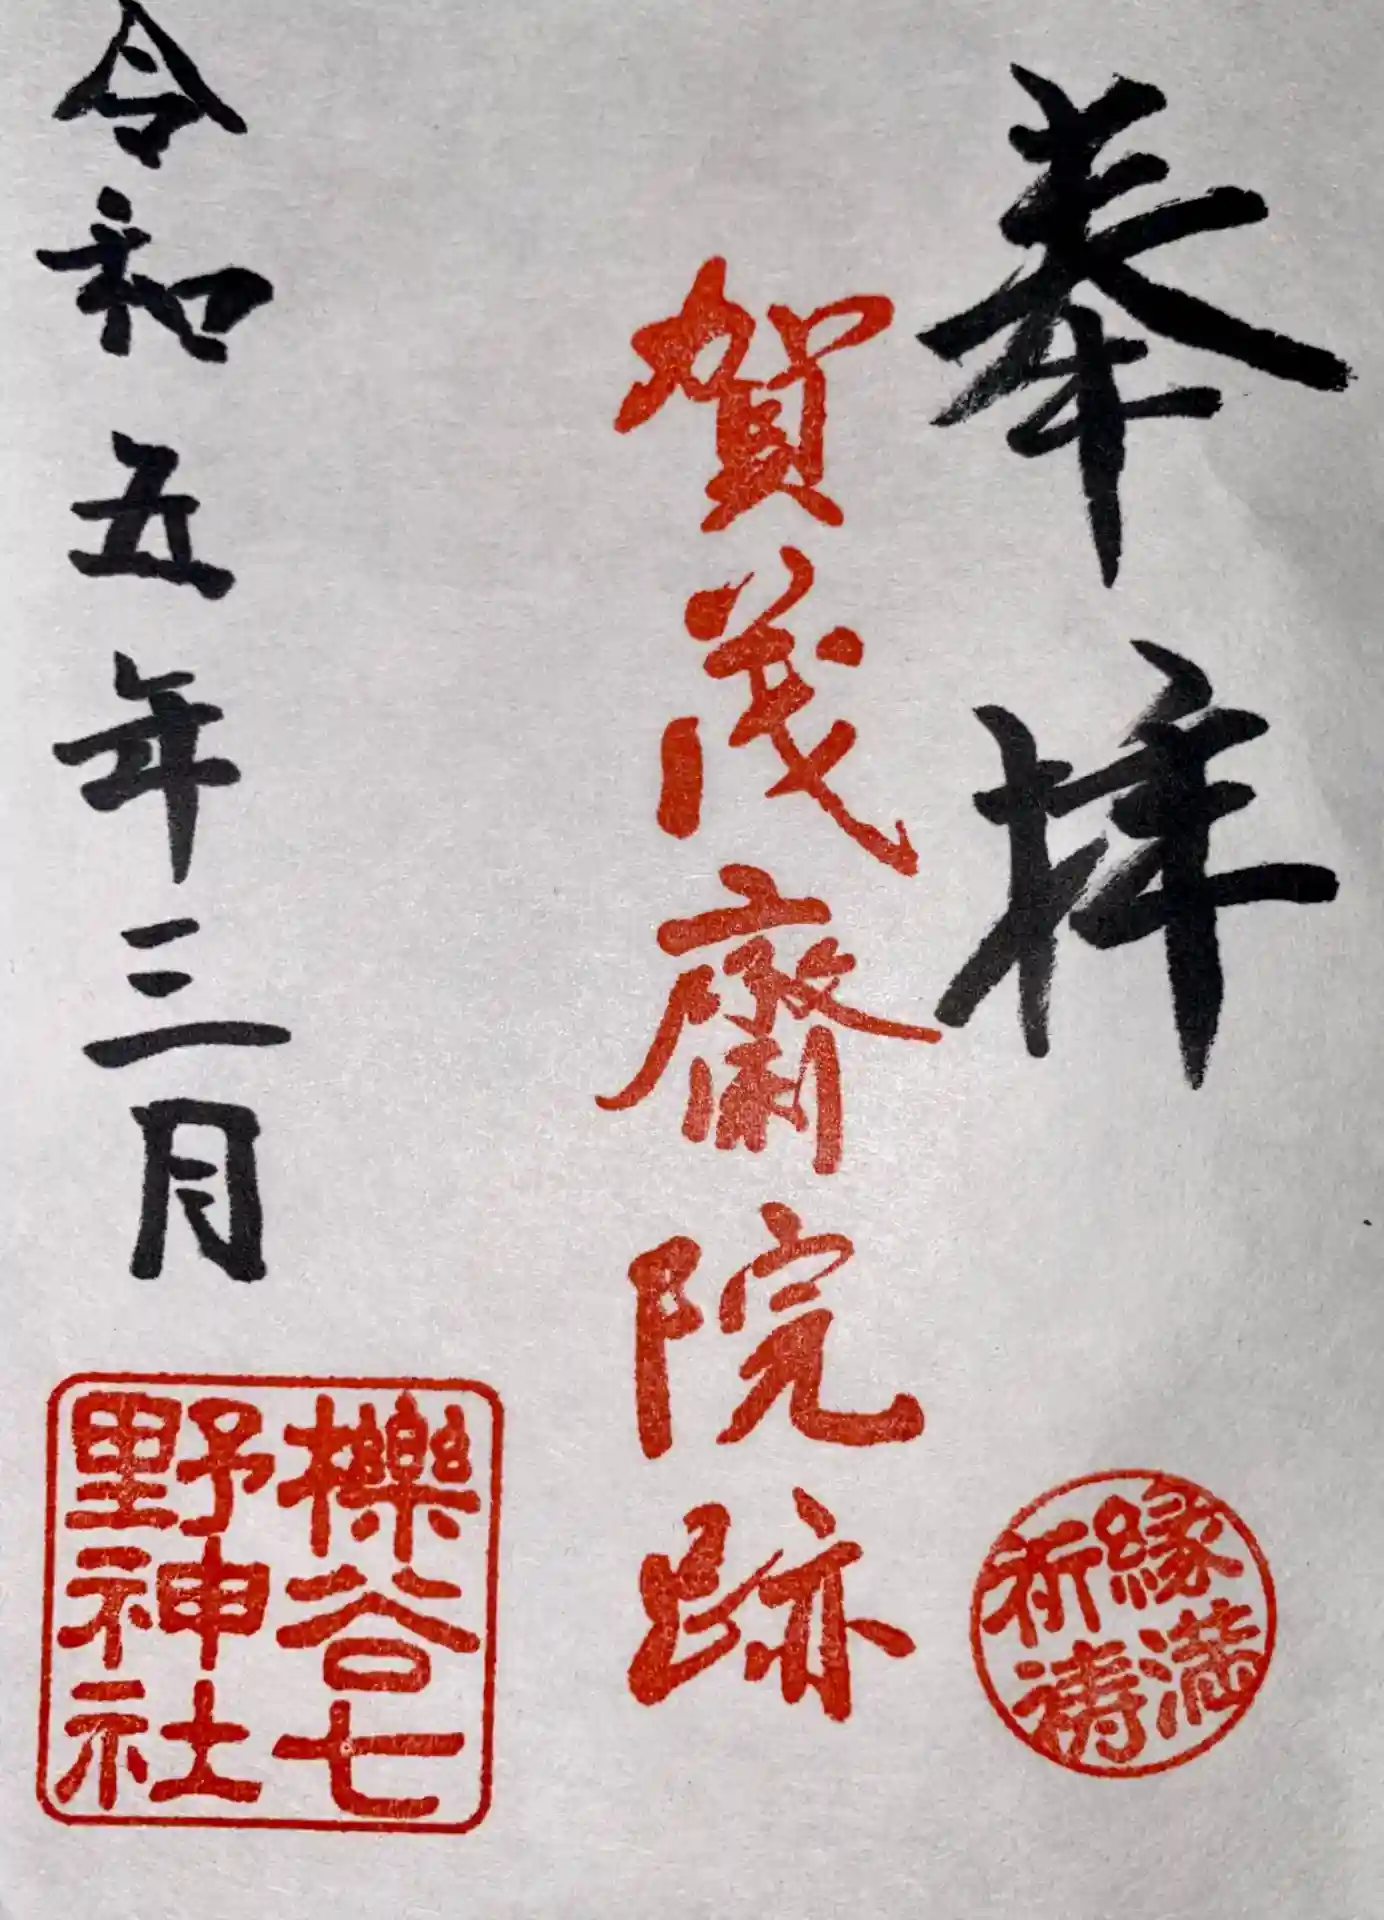 奉拝
縁満
祈祷
賀茂齋院跡
令和五年三月
櫟谷七
野神社